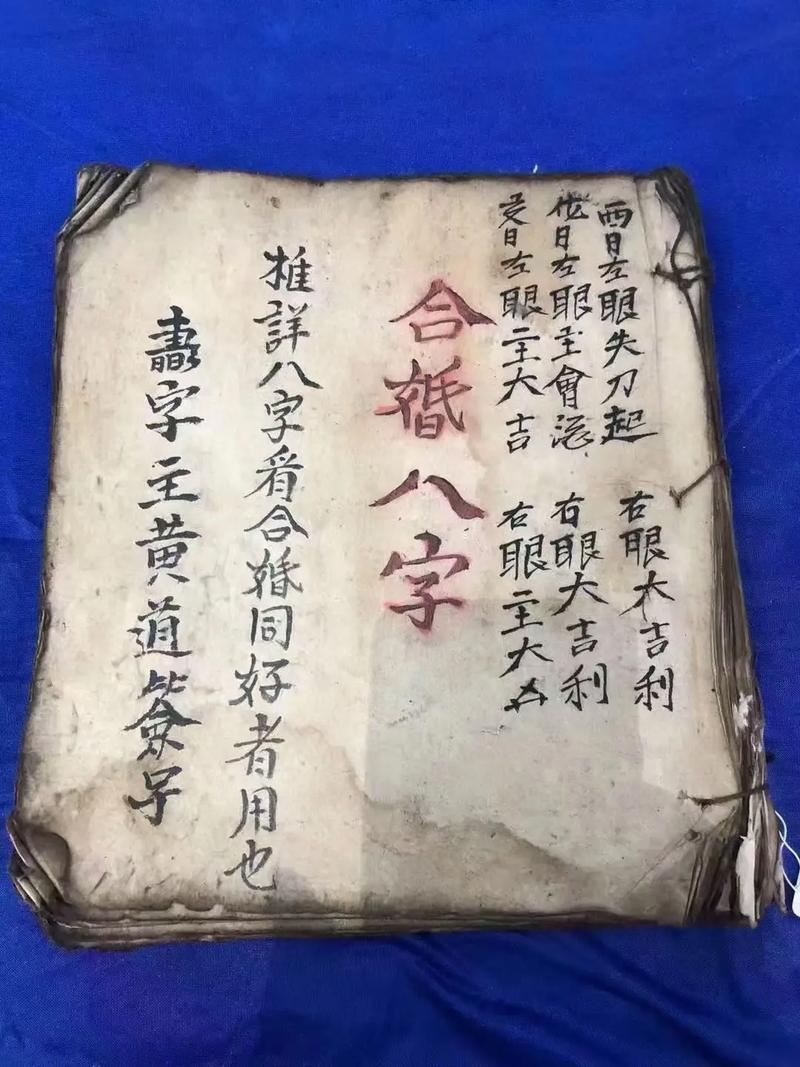 酉日左眼失刀起
右眼大吉利
日左眼主會
右眼大吉利
日左眼主大吉
右眼主大凶
合婚八字
推詳八字看合婚同好者用也
字主黃道